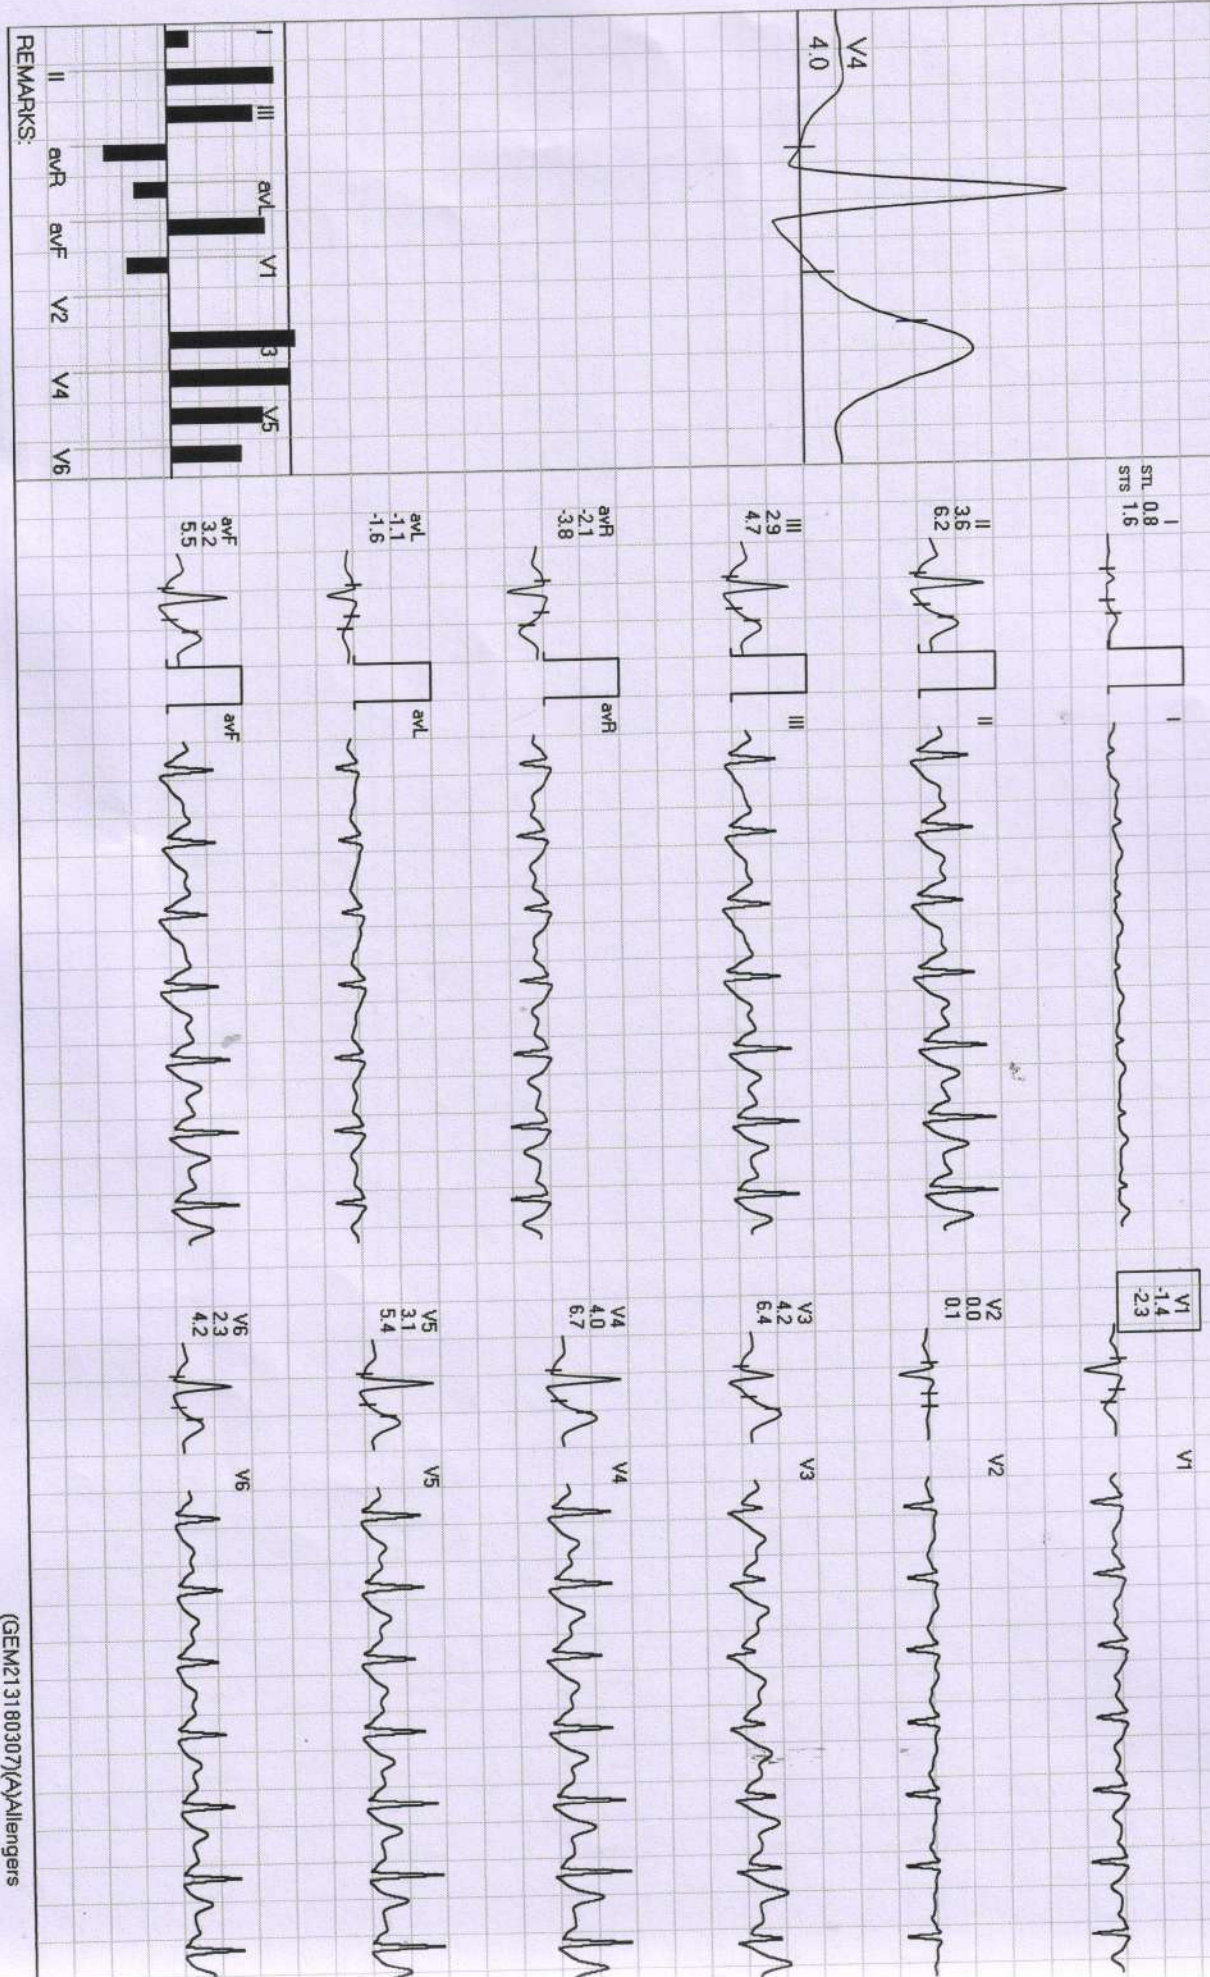 V4
4.0
I
STL 0.8
STS 1.6
I
II
3.6
6.2
II
III
2.9
4.7
III
avR
-2.1
-3.8
avR
avL
-1.1
-1.6
avL
avF
3.2
5.5
avF
V1
-1.4
-2.3
V1
V2
0.0
0.1
V2
V3
4.2
6.4
V3
V4
4.0
6.7
V4
V5
3.1
5.4
V5
V6
2.3
4.2
V6
I III avL V1 3 V5
II avR avF V2 V4 V6
REMARKS:
(GEM213180307)(A)Allengers